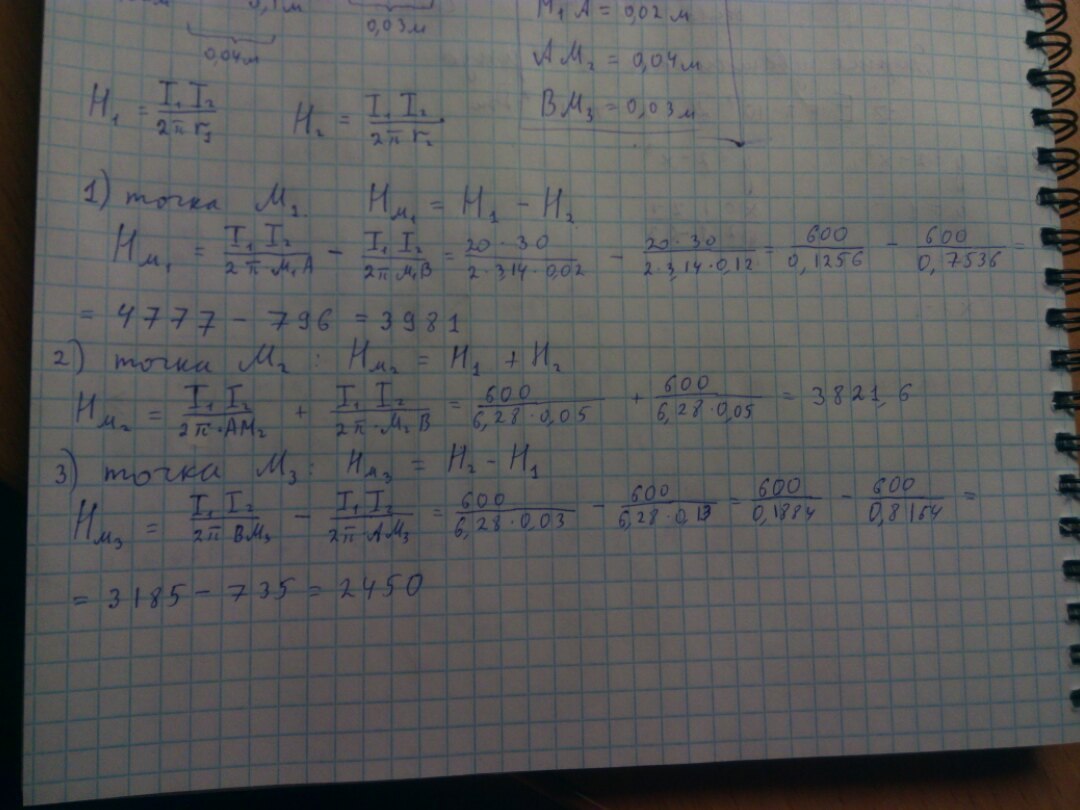 0,04м
0,03м
M₁A = 0,02м
AM₂ = 0,04м
BM₃ = 0,03м
H₁ = I₁ I₂ / 2π r₁    H₂ = I₁ I₂ / 2π r₂
1) точка M₁.    Hм₁ = H₁ − H₂
Hм₁ = I₁ I₂ / 2π·M₁A − I₁ I₂ / 2π M₁B = 20·30 / 2·3,14·0,02 − 20·30 / 2·3,14·0,12 = 600 / 0,1256 − 600 / 0,7536 =
= 4777 − 796 = 3981
2) точка M₂: Hм₂ = H₁ + H₂
Hм₂ = I₁ I₂ / 2π·AM₂ + I₁ I₂ / 2π·M₂B = 600 / 6,28·0,05 + 600 / 6,28·0,05 = 3821,6
3) точка M₃: Hм₃ = H₂ − H₁
Hм₃ = I₁ I₂ / 2π BM₃ − I₁ I₂ / 2π·AM₃ = 600 / 6,28·0,03 − 600 / 6,28·0,13 = 600 / 0,1884 − 600 / 0,8164 =
= 3185 − 735 = 2450